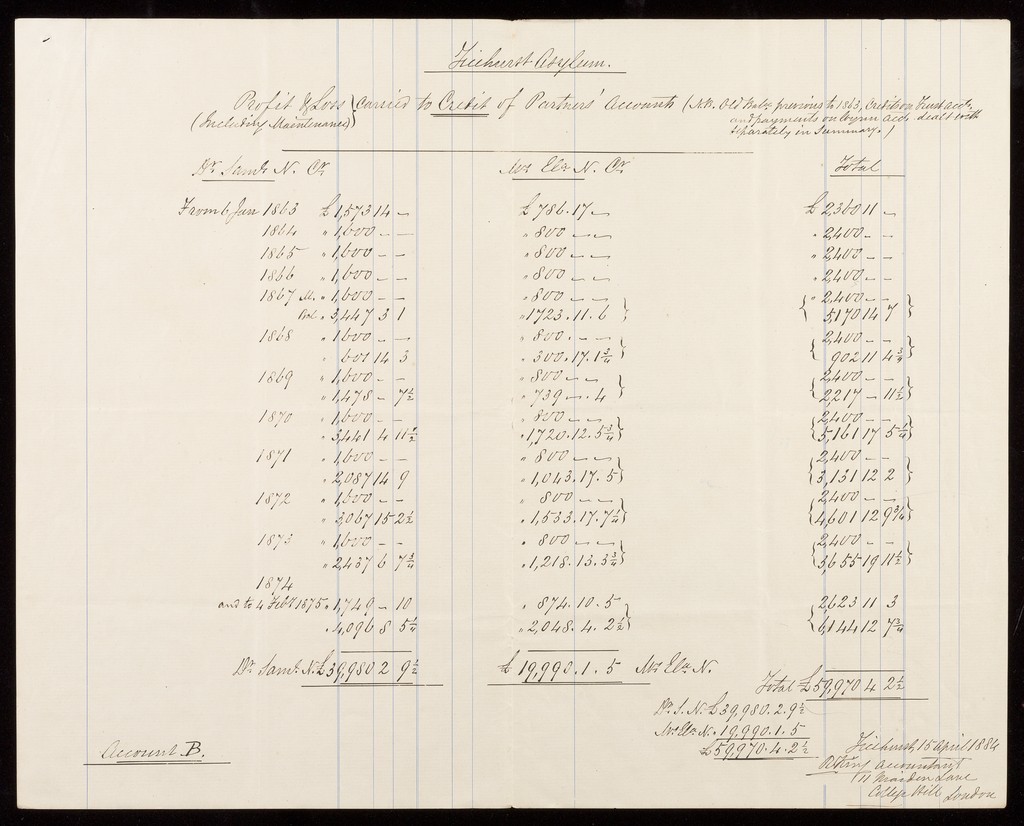 Ticehurst Asylum.
Profit & Loss } carried to Credit of Partners' Accounts (N.B. Old Balces previous to 1863, Credits on Trust acct,
(Including Maintenance) and payments on acct dealt with
separately in Summary.)
Dr Saml N. Cr Mrs Eliz N. Cr Total
From 6 Jan 1863 £1,573 14 – £786.17 – £2,360 11 –
1864 " 1,600 – – " 800 – – " 2,400 – –
1865 " 1,600 – – " 800 – – " 2,400 – –
1866 " 1,600 – – " 800 – – " 2,400 – –
1867 M. " 1,600 – – " 800 – – } { " 2,400 – – }
Bal. " 3,447 3 1 " 1723.11.6 } { 5,170 14 7 }
1868 " 1,600 – – " 800 . – – } { 2,400 – – }
" 601 14 3 " 300.17.1¾ } { 902 11 4¾ }
1869 " 1,600 – – " 800 – – } { 2,400 – – }
" 1,478 – 7½ " 739 – . 4 } { 2,217 – 11½ }
1870 " 1,600 – – " 800 – – } { 2,400 – – }
" 3,441 4 11½ " 1,720.12.5¾ } { 5,161 17 5¼ }
1871 " 1,600 – – " 800 – – } { 2,400 – – }
" 2,087 14 9 " 1,043.17.5 } { 3,131 12 2 }
1872 " 1,600 – – " 800 – – } { 2,400 – – }
" 3,067 15 2½ " 1,533.17.7¼ } { 4,601 12 9¾ }
1873 " 1,600 – – " 800 – – } { 2,400 – – }
" 2,437 6 7¾ " 1,218.13.3¾ } { 3,655 19 11½ }
1874
and to 4 Feby 1875 " 1,749 – 10 " 874.10.5 } { 2,623 11 3
" 4,096 8 5¼ " 2,048.4.2½ } { 6,144 12 7¾
Dr Saml. N. £39,980 2 9½ £19,990.1.5 Mrs Eliz N.
Total £59,970 4 2½
Dr. S. N. £39,980.2.9½
Mrs Eliz N. " 19,990.1.5
£59,970.4.2½
Account B.
Ticehurst, 15 April 1884
Accountant
11 Maiden Lane
College Hill London